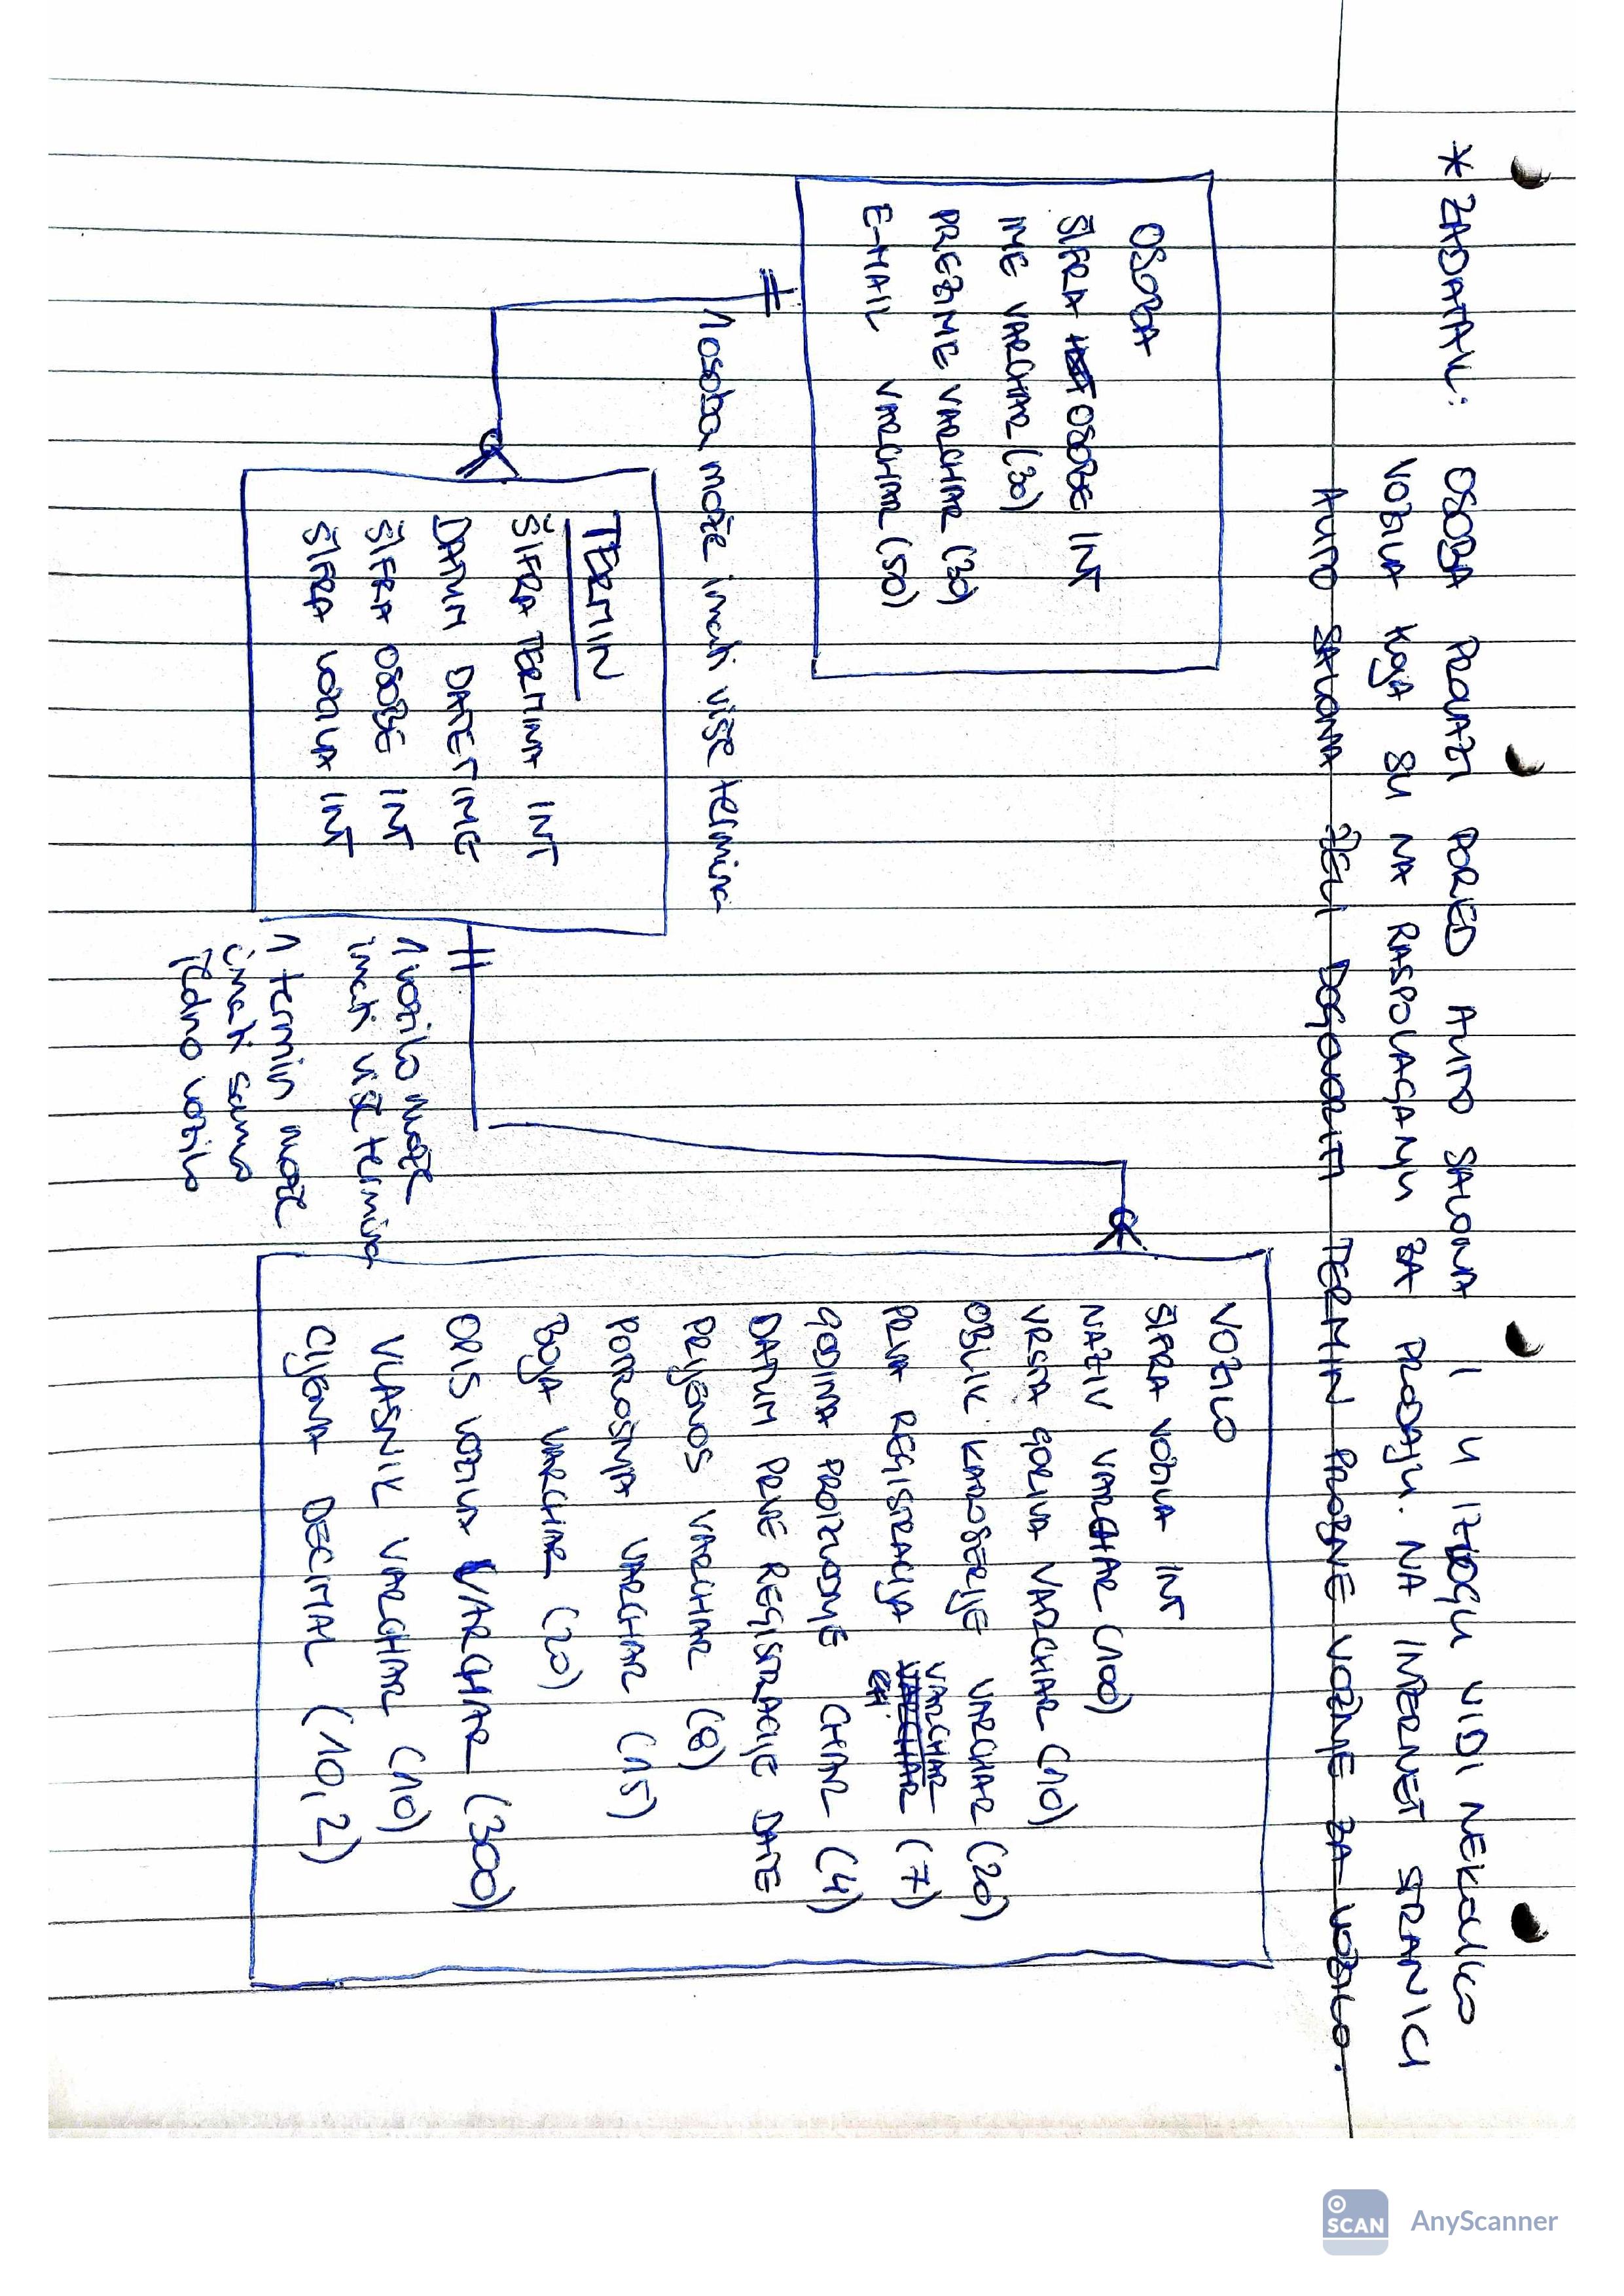 * ZADATAK: OSOBA PROLAZI PORED AUTO SALONA I U IZLOGU VIDI NEKOLIKO
VOZILA KOJA SU NA RASPOLAGANJU ZA PRODAJU. NA INTERNET STRANICI
AUTO SALONA ŽELI DOGOVORITI TERMIN PROBNE VOŽNJE ZA VOZILO.
OSOBA
ŠIFRA OSOBE INT
IME VARCHAR (30)
PREZIME VARCHAR (30)
E-MAIL VARCHAR (50)
1 osoba može imati više termina
TERMIN
ŠIFRA TERMINA INT
DATUM DATETIME
ŠIFRA OSOBE INT
ŠIFRA VOZILA INT
1 vozilo može
imati više termina
1 termin može
imati samo
jedno vozilo
VOZILO
ŠIFRA VOZILA INT
NAZIV VARCHAR (100)
VRSTA GORIVA VARCHAR (10)
OBLIK KAROSERIJE VARCHAR (20)
PRVA REGISTRACIJA VARCHAR (7)
GODINA PROIZVODNJE CHAR (4)
DATUM PRVE REGISTRACIJE DATE
PRIJENOS VARCHAR (8)
POTROŠNJA VARCHAR (15)
BOJA VARCHAR (20)
OPIS VOZILA VARCHAR (300)
VLASNIK VARCHAR (10)
CIJENA DECIMAL (10,2)
SCAN AnyScanner